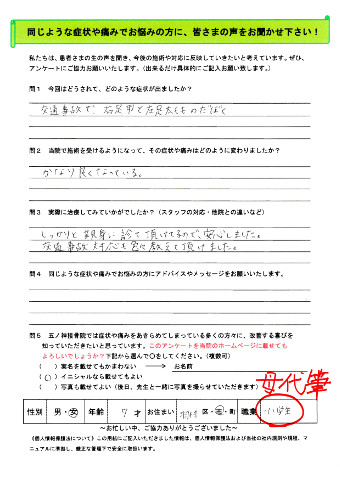 同じような症状や痛みでお悩みの方に、皆さまの声をお聞かせ下さい！
私たちは、患者さまの生の声を聞き、今後の施術や対応に反映していきたいと考えています。ぜひ、
アンケートにご協力お願いいたします。(出来るだけ具体的にご記入お願い致します。)
問1 今回はどうされて、どのような症状が出ましたか？
交通事故で、右足首で左足太ももの
問2 当院で施術を受けるようになって、その症状や痛みはどのように変わりましたか？
かなり良くなっている。
問3 実際に治療してみていかがでしたか？(スタッフの対応・他院との違いなど)
しっかりと親身に診て頂けてるので、安心しました。
交通事故対応も色々教えて頂けました。
問4 同じような症状や痛みでお悩みの方にアドバイスやメッセージをお願いいたします。
問5 五ノ神接骨院では症状や痛みをあきらめてしまっている多くの方々に、改善する喜びを
知っていただきたいと思っています。このアンケートを当院のホームページに載せても
よろしいでしょうか？下記から選んで○をしてください。(複数可)
( ) 実名を載せてもかまわない → お名前
(○) イニシャルなら載せてもよい
( ) 写真も載せてよい (後日、先生と一緒に写真を撮らせていただきます)
母代筆
性別 男・女 年齢 7才 お住まい 羽村 区・市・町 職業 小学生
～お忙しい中、ご協力ありがとうございました～
《個人情報保護法について》この用紙にご記入いただきました情報は、個人情報保護法および当社の社内規則や規程、マ
ニュアルに準拠し、厳正な管理下で安全に取扱います。